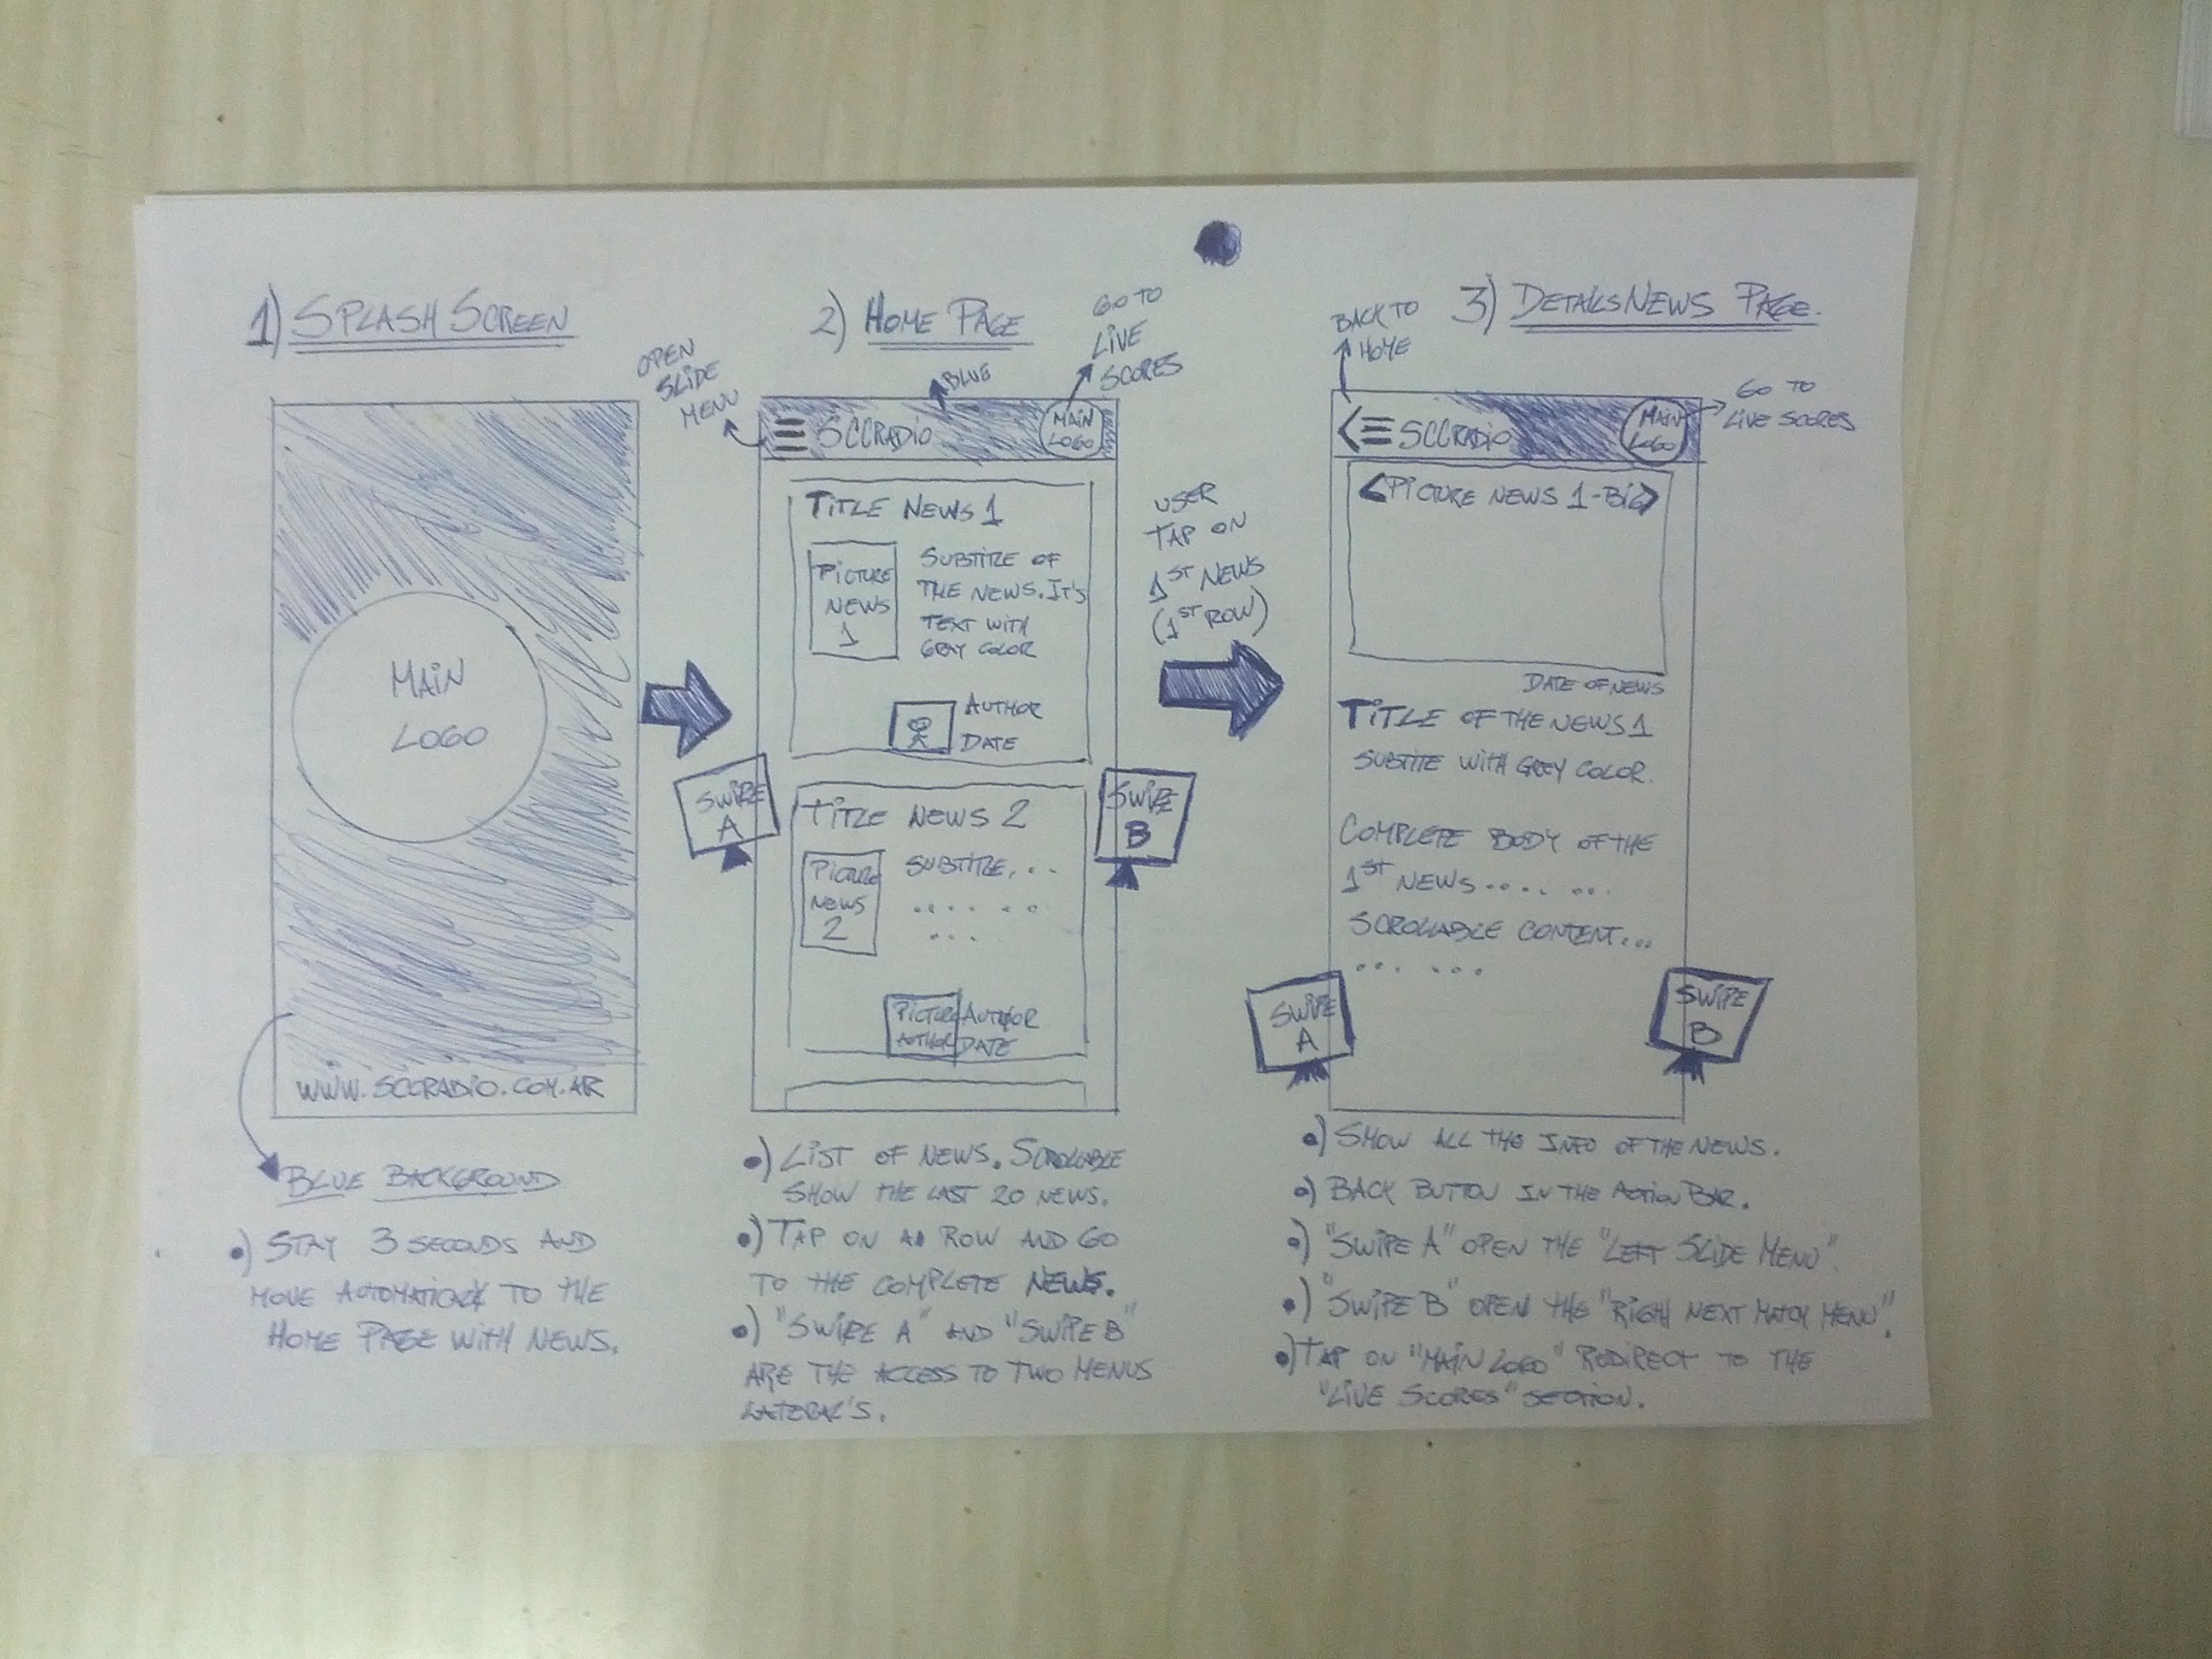 1) SPLASH SCREEN
MAIN
LOGO
WWW.SCCRADIO.COM.AR
BLUE BACKGROUND
•) STAY 3 SECONDS AND
MOVE TO THE
HOME PAGE WITH NEWS.
2) HOME PAGE
OPEN
SLIDE
MENU
BLUE
GO TO
LIVE
SCORES
SCCRADIO
MAIN
LOGO
TITLE NEWS 1
PICTURE
NEWS
1
SUBTITLE OF
THE NEWS. IT'S
TEXT WITH
GREY COLOR
AUTHOR
DATE
SWIPE
A
SWIPE
B
TITLE NEWS 2
PICTURE
NEWS
2
SUBTITLE, . .
.... ..
...
PICTURE
AUTHOR
AUTHOR
DATE
•) LIST OF NEWS. SCROLLABLE
SHOW THE LAST 20 NEWS.
•) TAP ON A ROW AND GO
TO THE COMPLETE NEWS.
•) "SWIPE A" AND "SWIPE B"
ARE THE ACCESS TO TWO MENUS
LATERAL'S.
USER
TAP ON
1ST NEWS
(1ST ROW)
3) DETAILS NEWS PAGE.
BACK TO
HOME
GO TO
LIVE SCORES
SCCRADIO
MAIN
LOGO
<PICTURE NEWS 1-BIG>
DATE OF NEWS
TITLE OF THE NEWS 1
SUBTITLE WITH GREY COLOR.
COMPLETE BODY OF THE
1ST NEWS .... ...
SCROLLABLE CONTENT...
... ...
SWIPE
A
SWIPE
B
•) SHOW ALL THE INFO OF THE NEWS.
•) BACK BUTTON IN THE ACTION BAR.
•) "SWIPE A" OPEN THE "LEFT SLIDE MENU".
•) "SWIPE B" OPEN THE "RIGH NEXT MATCH MENU".
•) TAP ON "MAIN LOGO" REDIRECT TO THE
"LIVE SCORES" SECTION.